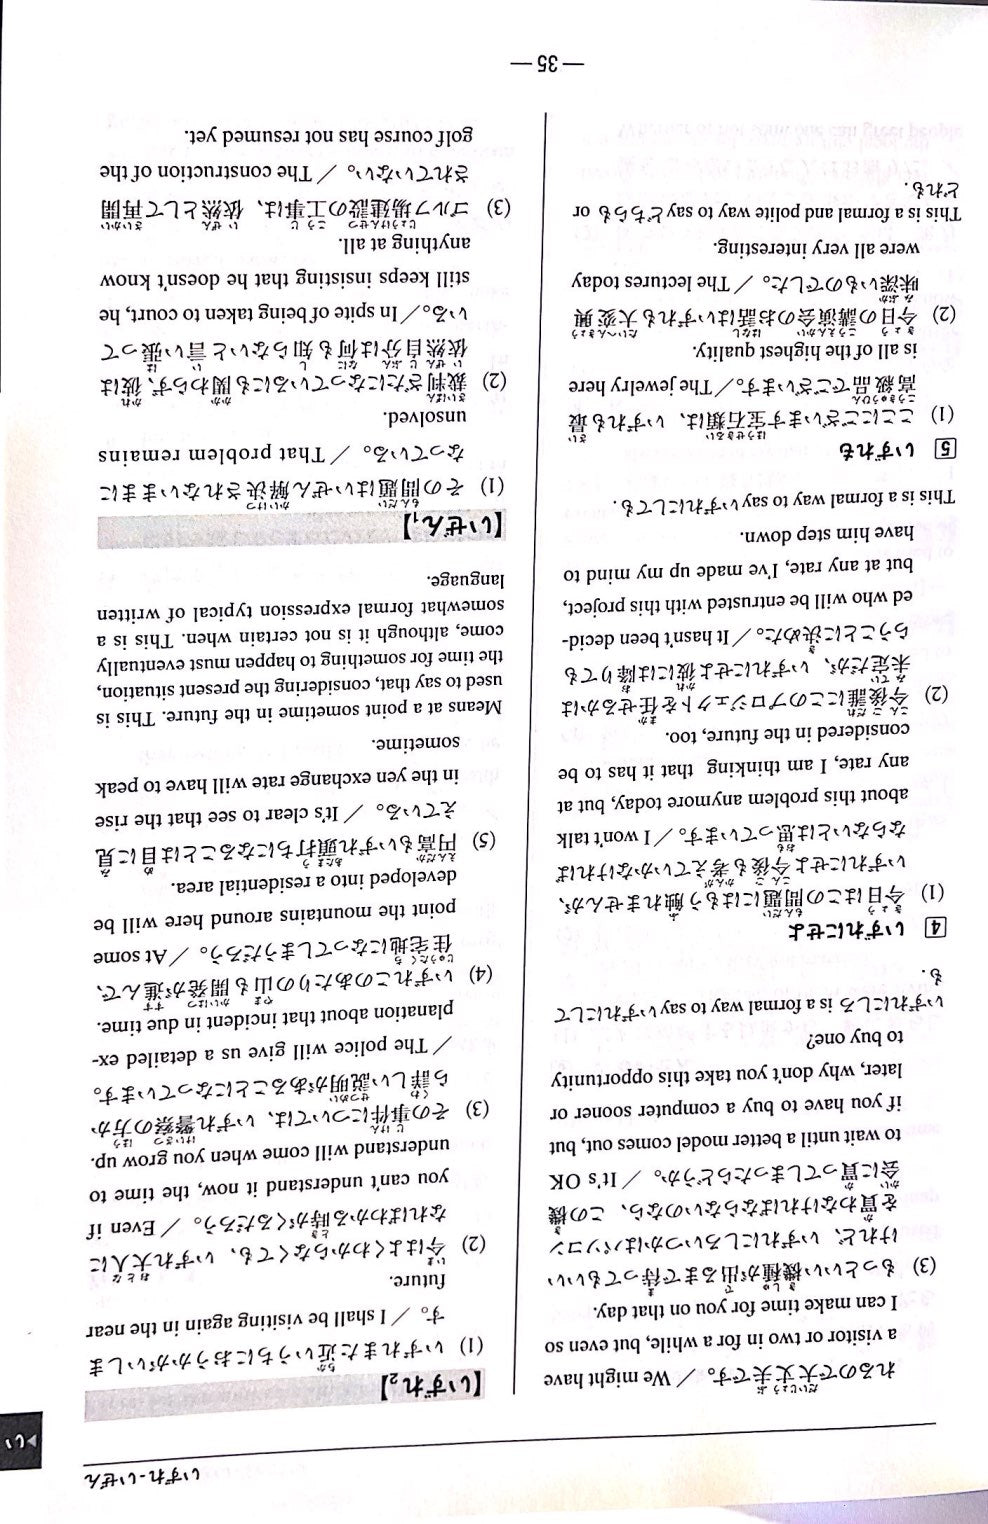 いずれ-いぜん
▶い
れるので大丈夫です。／We might have
a visitor or two in for a while, but even so
I can make time for you on that day.
(3) もっといい機種が出るまで待ってもいい
けれど、いずれにしろいつかはパソコン
を買わなければならないのなら、この機
会に買ってしまったらどうか。／It's OK
to wait until a better model comes out, but
if you have to buy a computer sooner or
later, why don't you take this opportunity
to buy one?
いずれにしろ is a formal way to say いずれにして
も.
4 いずれにせよ
(1) 今日はこの問題にはもう触れませんが、
いずれにせよ今後も考えていかなければ
ならないとは思っています。／I won't talk
about this problem anymore today, but at
any rate, I am thinking that it has to be
considered in the future, too.
(2) 今後誰にこのプロジェクトを任せるかは
未定だが、いずれにせよ彼には降りても
らうことに決めた。／It hasn't been decid-
ed who will be entrusted with this project,
but at any rate, I've made up my mind to
have him step down.
This is a formal way to say いずれにしても.
5 いずれも
(1) ここにございます宝石類は、いずれも最
高級品でございます。／The jewelry here
is all of the highest quality.
(2) 今日の講演会のお話はいずれも大変興
味深いものでした。／The lectures today
were all very interesting.
This is a formal and polite way to say どちらも or
どれも.
【いずれ2】
(1) いずれまた近いうちにおうかがいしま
す。／I shall be visiting again in the near
future.
(2) 今はよくわからなくても、いずれ大人に
なればわかる時がくるだろう。／Even if
you can't understand it now, the time to
understand will come when you grow up.
(3) その事件については、いずれ警察の方か
ら詳しい説明があることになっています。
／The police will give us a detailed ex-
planation about that incident in due time.
(4) いずれこのあたりの山も開発が進んで、
住宅地になってしまうだろう。／At some
point the mountains around here will be
developed into a residential area.
(5) 円高もいずれ頭打ちになることは目に見
えている。／It's clear to see that the rise
in the yen exchange rate will have to peak
sometime.
Means at a point sometime in the future. This is
used to say that, considering the present situation,
the time for something to happen must eventually
come, although it is not certain when. This is a
somewhat formal expression typical of written
language.
【いぜん1】
(1) その問題はいぜん解決されないままに
なっている。／That problem remains
unsolved.
(2) 裁判ざたになっているにも関わらず、彼は
依然自分は何も知らないと言い張って
いる。／In spite of being taken to court, he
still keeps insisting that he doesn't know
anything at all.
(3) ゴルフ場建設の工事は、依然として再開
されていない。／The construction of the
golf course has not resumed yet.
— 35 —